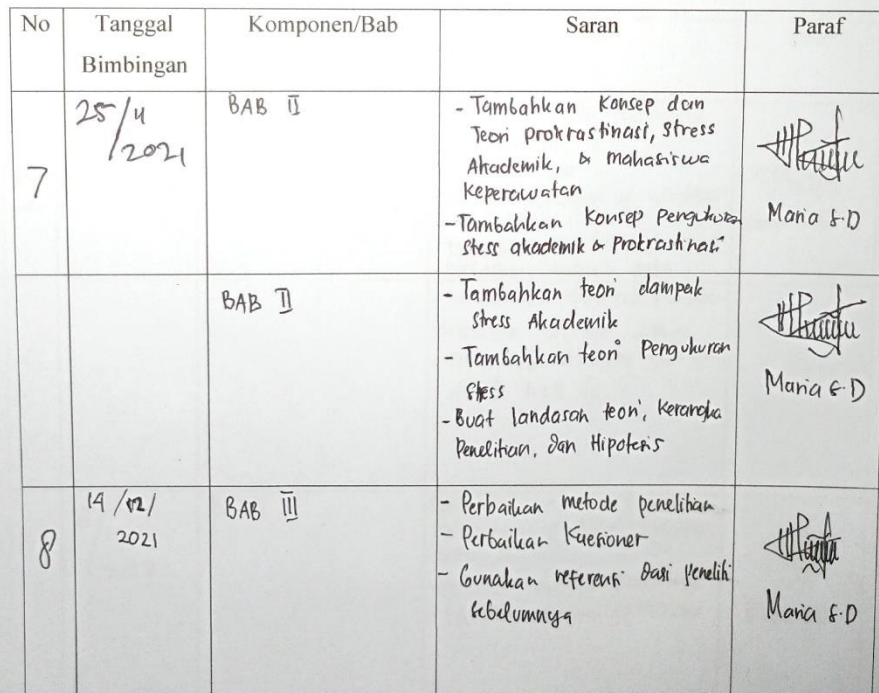 No Tanggal Bimbingan Komponen/Bab Saran Paraf
7 25/4/2021 BAB II
- Tambahkan Konsep dan
Teori prokrastinasi, stress
Akademik, & mahasiswa
Keperawatan
- Tambahkan Konsep pengukuran
Stess akademik & Prokrastinasi
Maria S.D
BAB II
- Tambahkan teori dampak
Stress Akademik
- Tambahkan teori Pengukuran
Stess
- Buat landasan teori, Kerangka
Penelitian, dan Hipotesis
Maria S.D
8 14/12/2021 BAB III
- Perbaikan metode penelitian
- Perbaikan Kuesioner
- Gunakan referensi dari peneliti
sebelumnya
Maria S.D